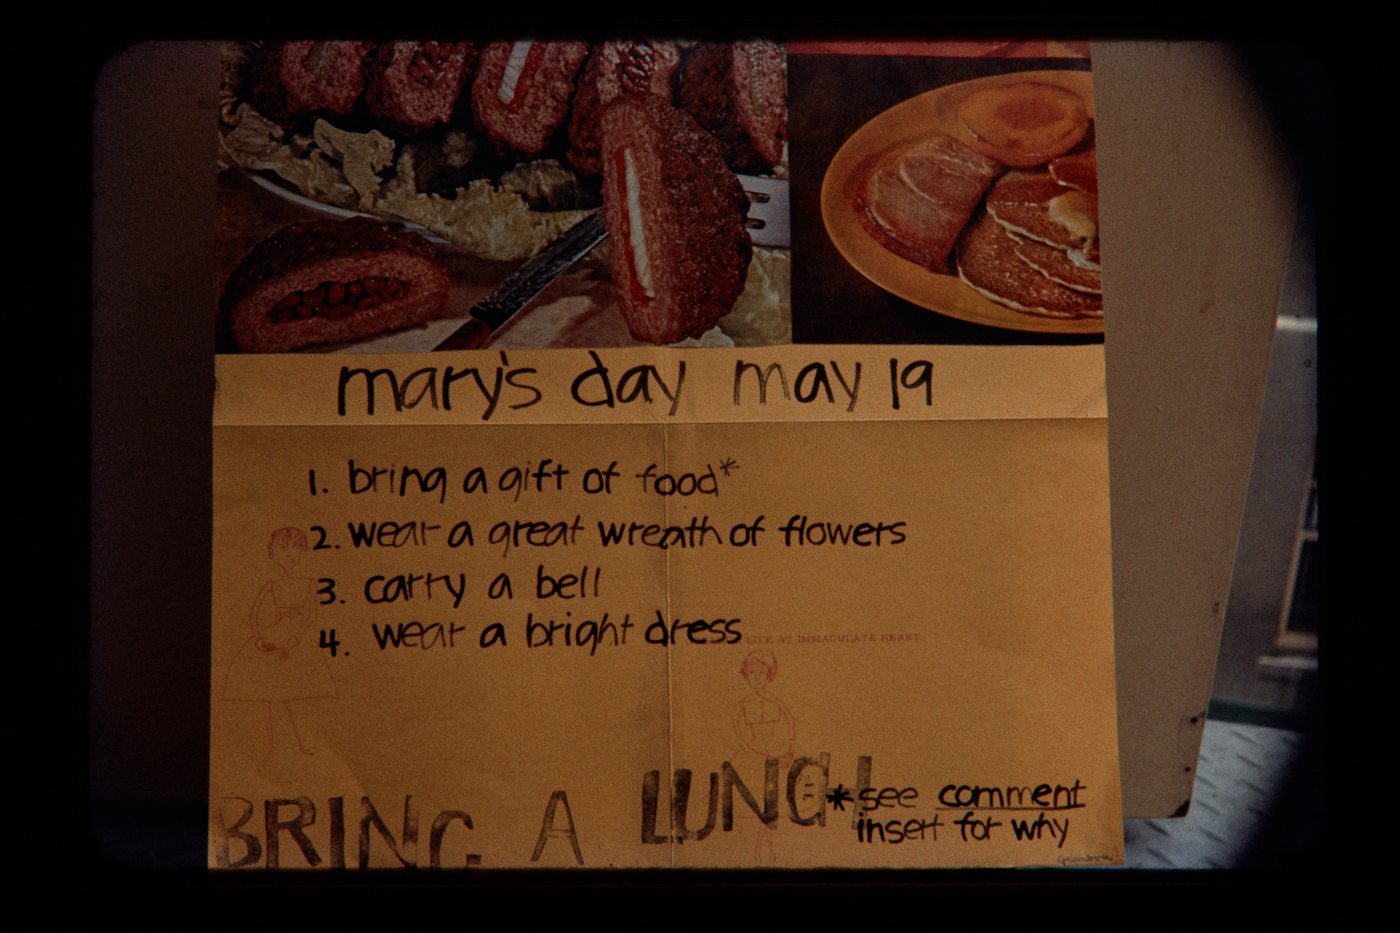 mary's day may 19
1. bring a gift of food*
2. wear a great wreath of flowers
3. carry a bell
4. wear a bright dress
LIFE AT IMMACULATE HEART
BRING A
* see comment
insert for why